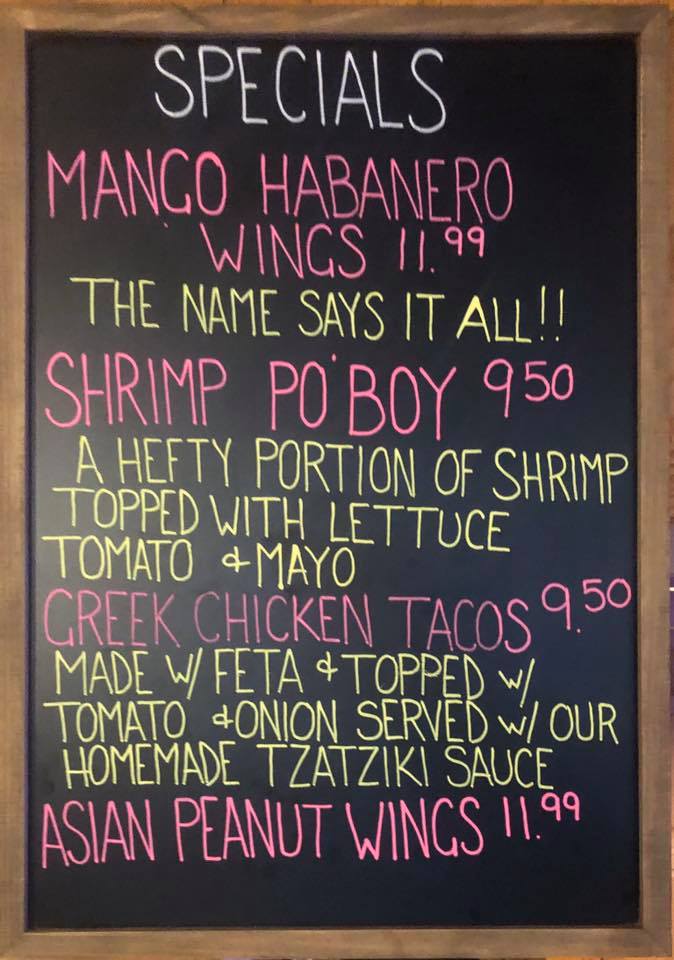 SPECIALS
MANGO HABANERO
WINGS 11.99
THE NAME SAYS IT ALL!!
SHRIMP PO'BOY 9 50
A HEFTY PORTION OF SHRIMP
TOPPED WITH LETTUCE
TOMATO & MAYO
GREEK CHICKEN TACOS 9.50
MADE W/ FETA & TOPPED W/
TOMATO & ONION SERVED W/ OUR
HOMEMADE TZATZIKI SAUCE
ASIAN PEANUT WINGS 11.99